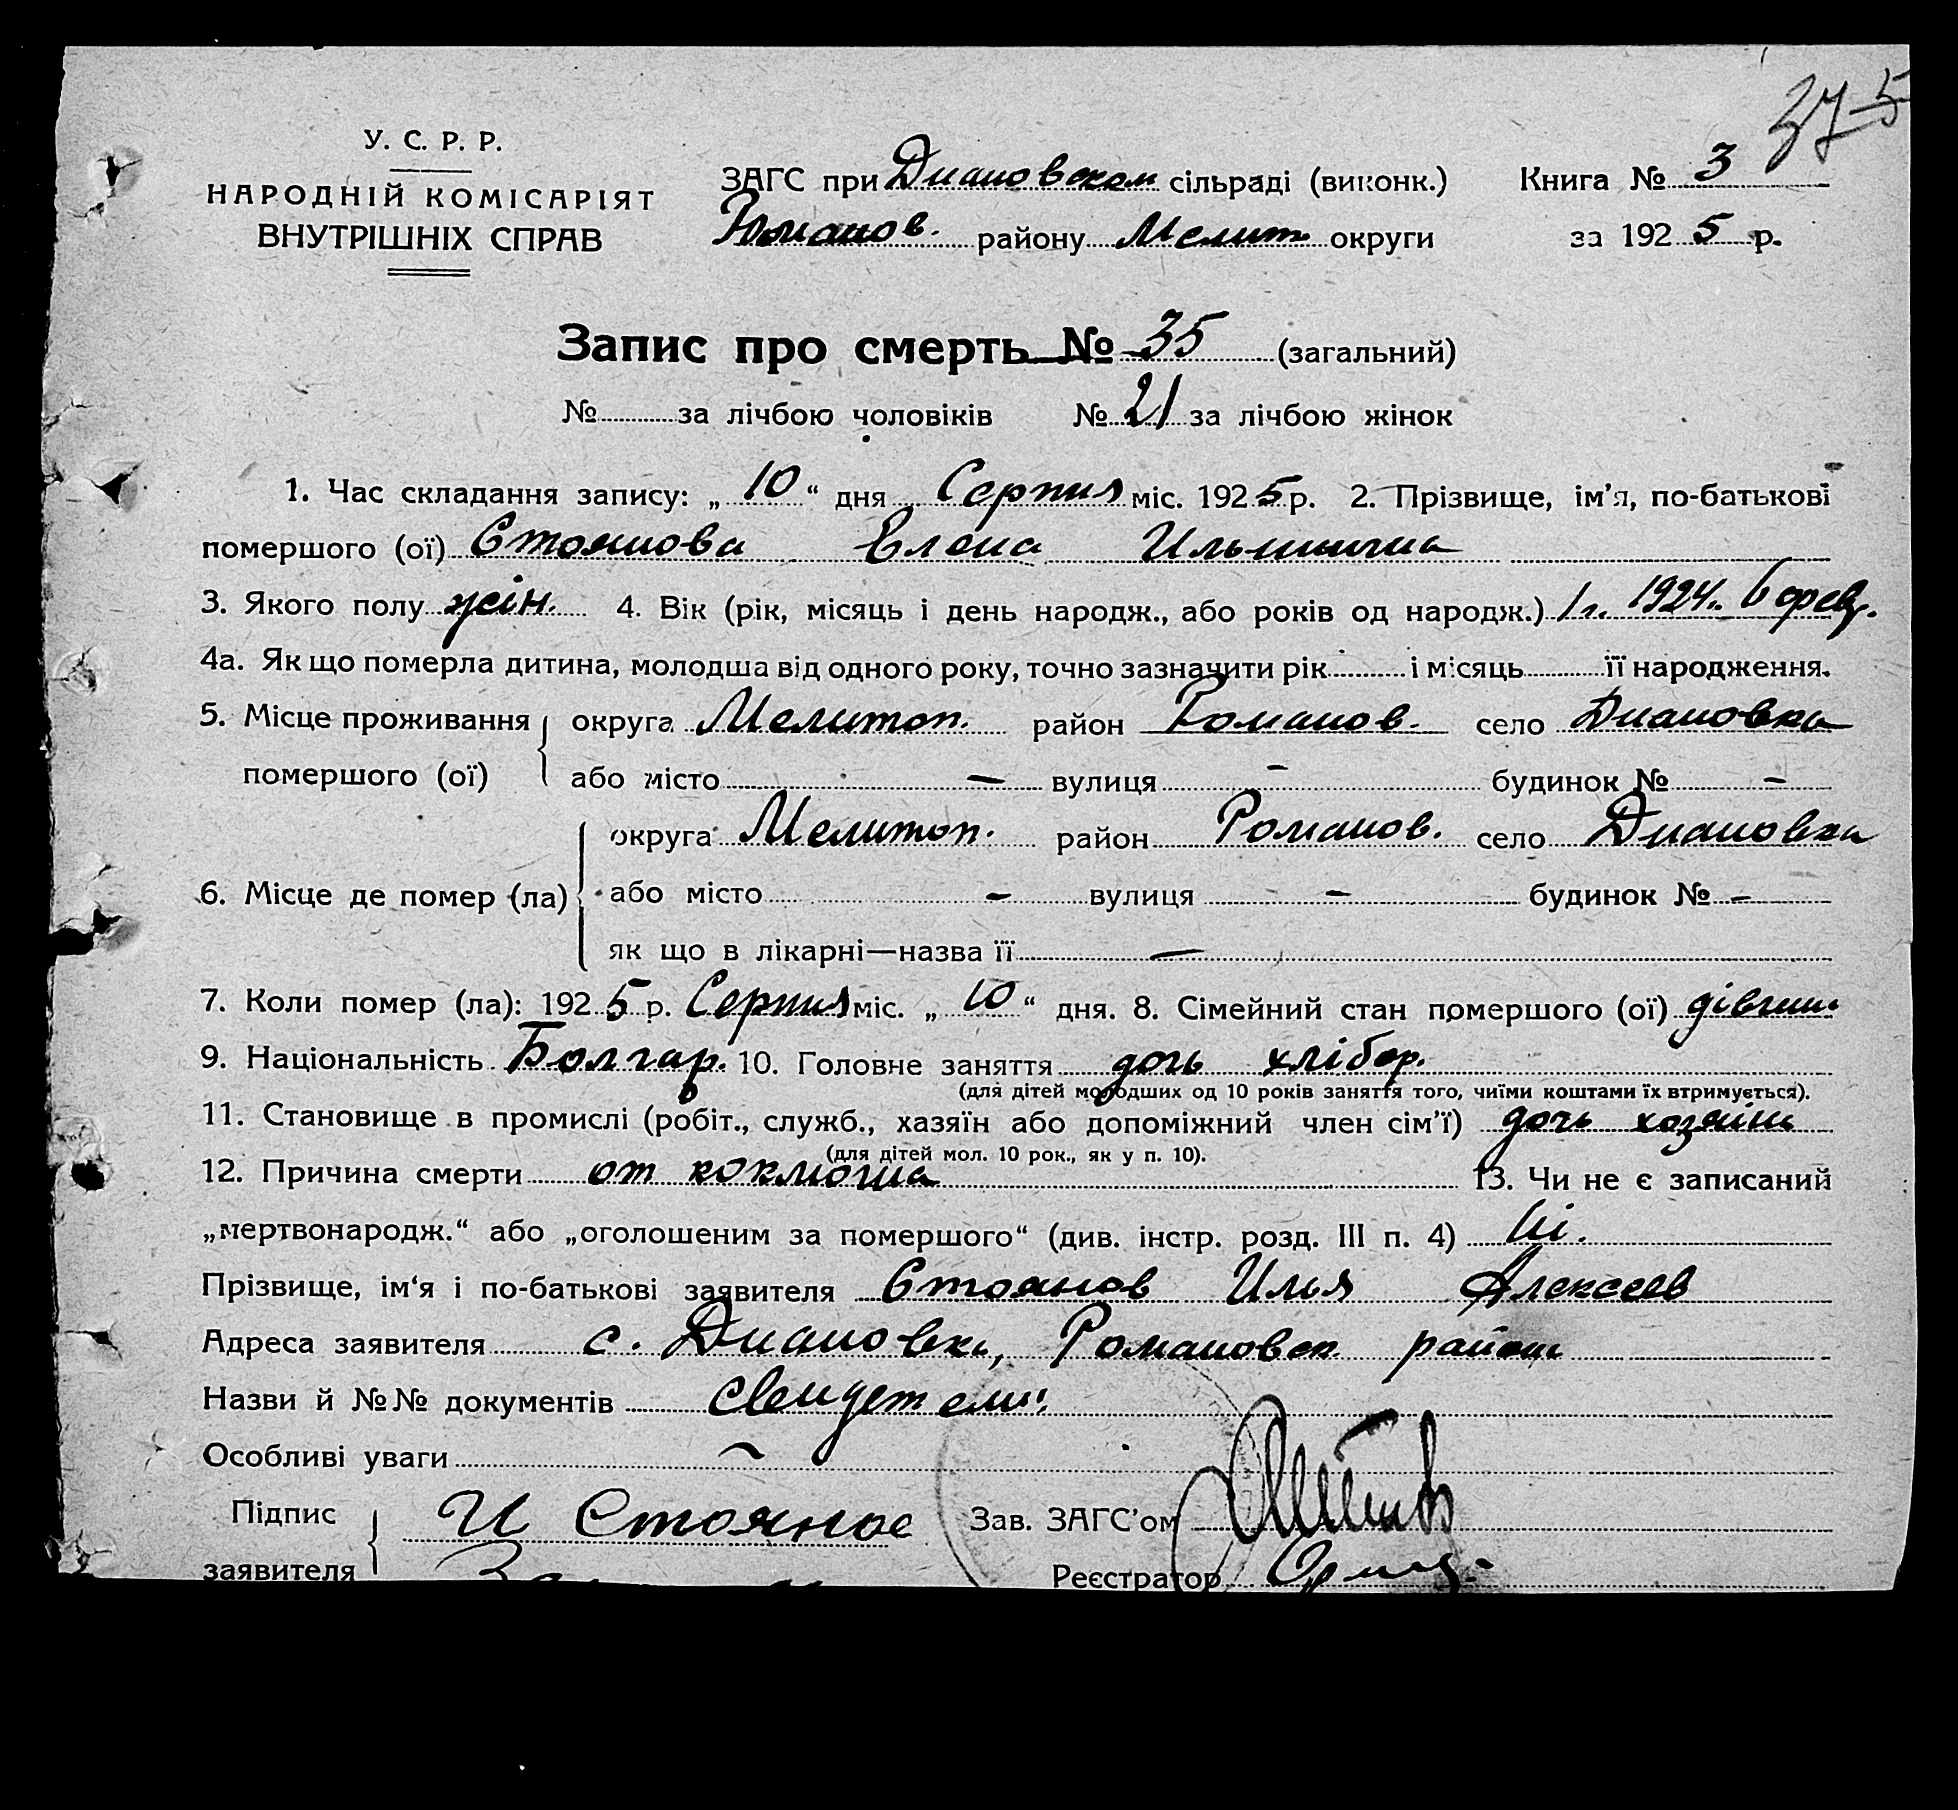 375
У. С. Р. Р.
НАРОДНІЙ КОМІСАРІЯТ
ВНУТРІШНІХ СПРАВ
ЗАГС при Диановском сільраді (виконк.) Книга № 3
Романов. району Мелит округи за 1925 р.
Запис про смерть № 35 (загальний)
№ за лічбою чоловіків № 21 за лічбою жінок
1. Час складання запису: „ 10 “ дня Серпня міс. 1925 р. 2. Прізвище, ім’я, по-батькові
помершого (ої) Стоянова Елена Ильинична
3. Якого полу жін. 4. Вік (рік, місяць і день народж., або років од народж.) 1 г. 1924. 6 февр.
4а. Як що померла дитина, молодша від одного року, точно зазначити рік і місяць її народження.
5. Місце проживання округа Мелитоп. район Романов. село Диановка
помершого (ої) або місто — вулиця - будинок № -
округа Мелитоп. район Романов. село Диановка
6. Місце де помер (ла) або місто - вулиця - будинок № -
як що в лікарні—назва її —
7. Коли помер (ла): 1925 р. Серпня міс. „ 10 “ дня. 8. Сімейний стан помершого (ої) дівчин.
9. Національність Болгар. 10. Головне заняття дочь хлібор.
(для дітей молодших од 10 років заняття того, чиїми коштами їх втримується).
11. Становище в промислі (робіт., служб., хазяїн або допоміжний член сім’ї) дочь хозяїна
(для дітей мол. 10 рок., як у п. 10).
12. Причина смерти от коклюша 13. Чи не є записаний
„мертвонародж.“ або „оголошеним за помершого“ (див. інстр. розд. III п. 4) Ні.
Прізвище, ім‘я і по-батькові заявителя Стоянов Илья Алексеев
Адреса заявителя с. Диановка, Романовск района
Назви й №№ документів свидетели
Особливі уваги
Підпис И Стоянов Зав. ЗАГС’ом
заявителя Реєстратор